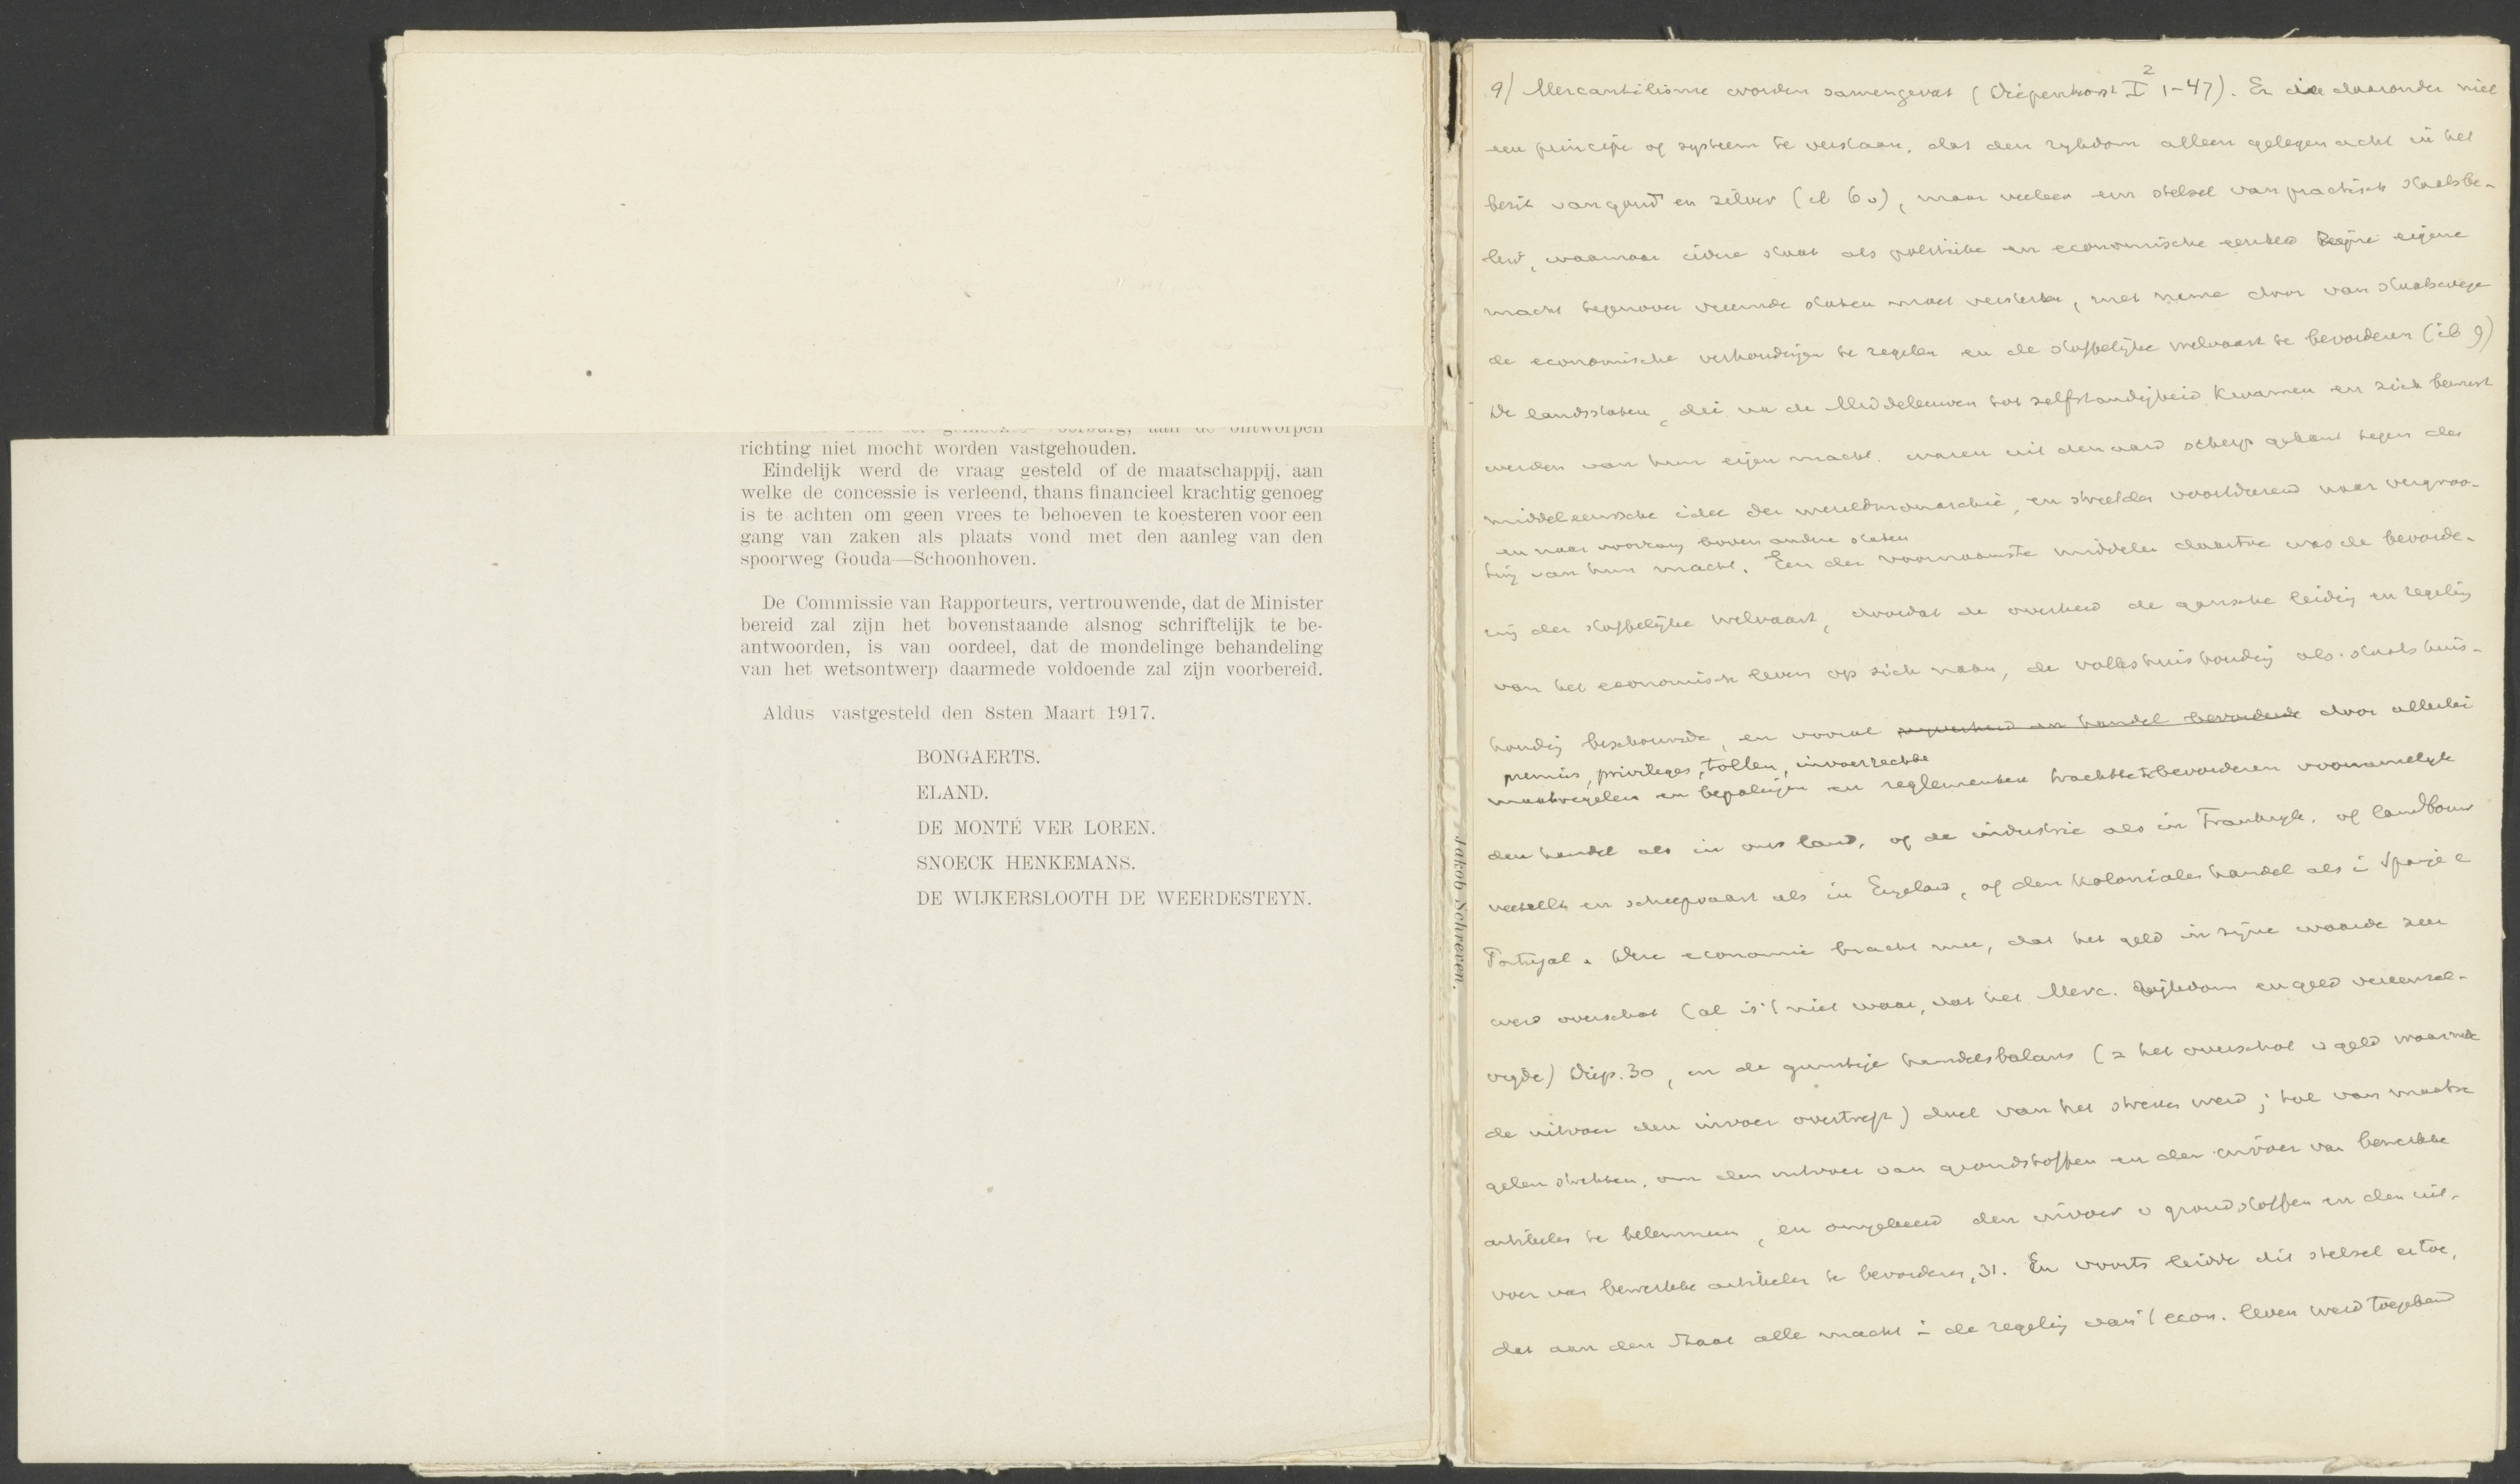 richting niet mocht worden vastgehouden.
Eindelijk werd de vraag gesteld of de maatschappij, aan
welke de concessie is verleend, thans financieel krachtig genoeg
is te achten om geen vrees te behoeven te koesteren voor een
gang van zaken als plaats vond met den aanleg van den
spoorweg Gouda—Schoonhoven.
De Commissie van Rapporteurs, vertrouwende, dat de Minister
bereid zal zijn het bovenstaande alsnog schriftelijk te be-
antwoorden, is van oordeel, dat de mondelinge behandeling
van het wetsontwerp daarmede voldoende zal zijn voorbereid.
Aldus vastgesteld den 8sten Maart 1917.
BONGAERTS.
ELAND.
DE MONTÉ VER LOREN.
SNOECK HENKEMANS.
DE WIJKERSLOOTH DE WEERDESTEYN.
Jakob Schreven.
9) Mercantilisme worden samengevat (Diepenhorst I² 1-47). Er is daaronder niet
een principe of systeem te verstaan, dat den rykdom alleen gelegen acht in het
bezit van goud en zilver (ib 60), maar veeleer een stelsel van practisch staatsbe-
leid, waarnaar iedere staat als politieke en economische eenheid zijne eigene
macht tegenover vreemde staten moet versterken, met name door van staatswege
de economische verhoudingen te regelen en de stoffelijke welvaart te bevorderen (ib 9)
De landsstaten, die na de Middeleeuwen tot zelfstandigheid kwamen en zich bewust
werden van hun eigen macht, waren uit den aard scherp gekant tegen de
middeleeuwsche idee der wereldmonarchie, en streefden voortdurend naar vergroo-
en naar voorrang boven andere staten
ting van hun macht. Een der voornaamste middelen daartoe was de bevorde-
ring der stoffelijke welvaart, doordat de overheid de gansche leiding en regeling
van het economisch leven op zich nam, de volkshuishouding als staatshuis-
houding beschouwde, en vooral nyverheid en handel bevorderde door allerlei
premies, privileges, tollen, invoerrechten
maatregelen en bepalingen en reglementen trachtte te bevorderen voornamelyk
den handel als in ons land, of de industrie als in Frankryk, of landbouw
veeteelt en scheepvaart als in Engeland, of den kolonialen handel als i Spanje e
Portugal. Deze economie bracht mee, dat het geld in zijne waarde zeer
werd overschat (al is 't niet waar, dat het Merc. Rijkdom en geld vereenzel-
vigde) Diep. 30, en de gunstige handelsbalans (= het overschot v geld waarmee
de uitvoer den invoer overtreft) doel van het streven werd; tal van maatre
gelen strekten, om den uitvoer van grondstoffen en den invoer van bewerkte
artikelen te belemmeren, en omgekeerd den invoer v grondstoffen en den uit-
voer van bewerkte artikelen te bevorderen, 31. En voorts leidde dit stelsel ertoe,
dat aan den Staat alle macht i de regeling van 't econ. leven werd toegekend